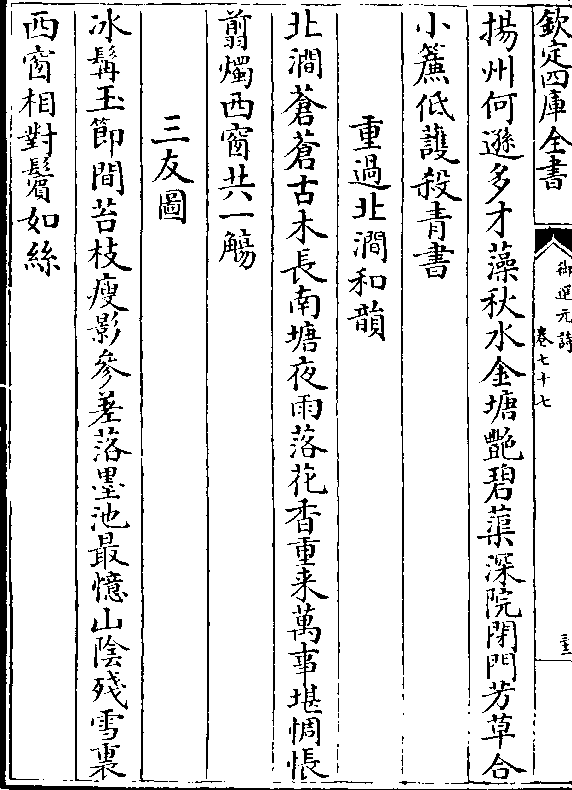 欽定四庫全書
御選元詩
卷七十七
揚州何遜多才藻秋水金塘艷碧蕖深院閉門芳草合
小簾低護殺青書
重過北澗和韻
北澗蒼蒼古木長南塘夜雨落花香重来萬事堪惆悵
翦燭西窗共一觴
三友圖
冰髯玉節間苔枝瘦影參差落墨池最憶山陰殘雪裏
西窗相對鬢如絲